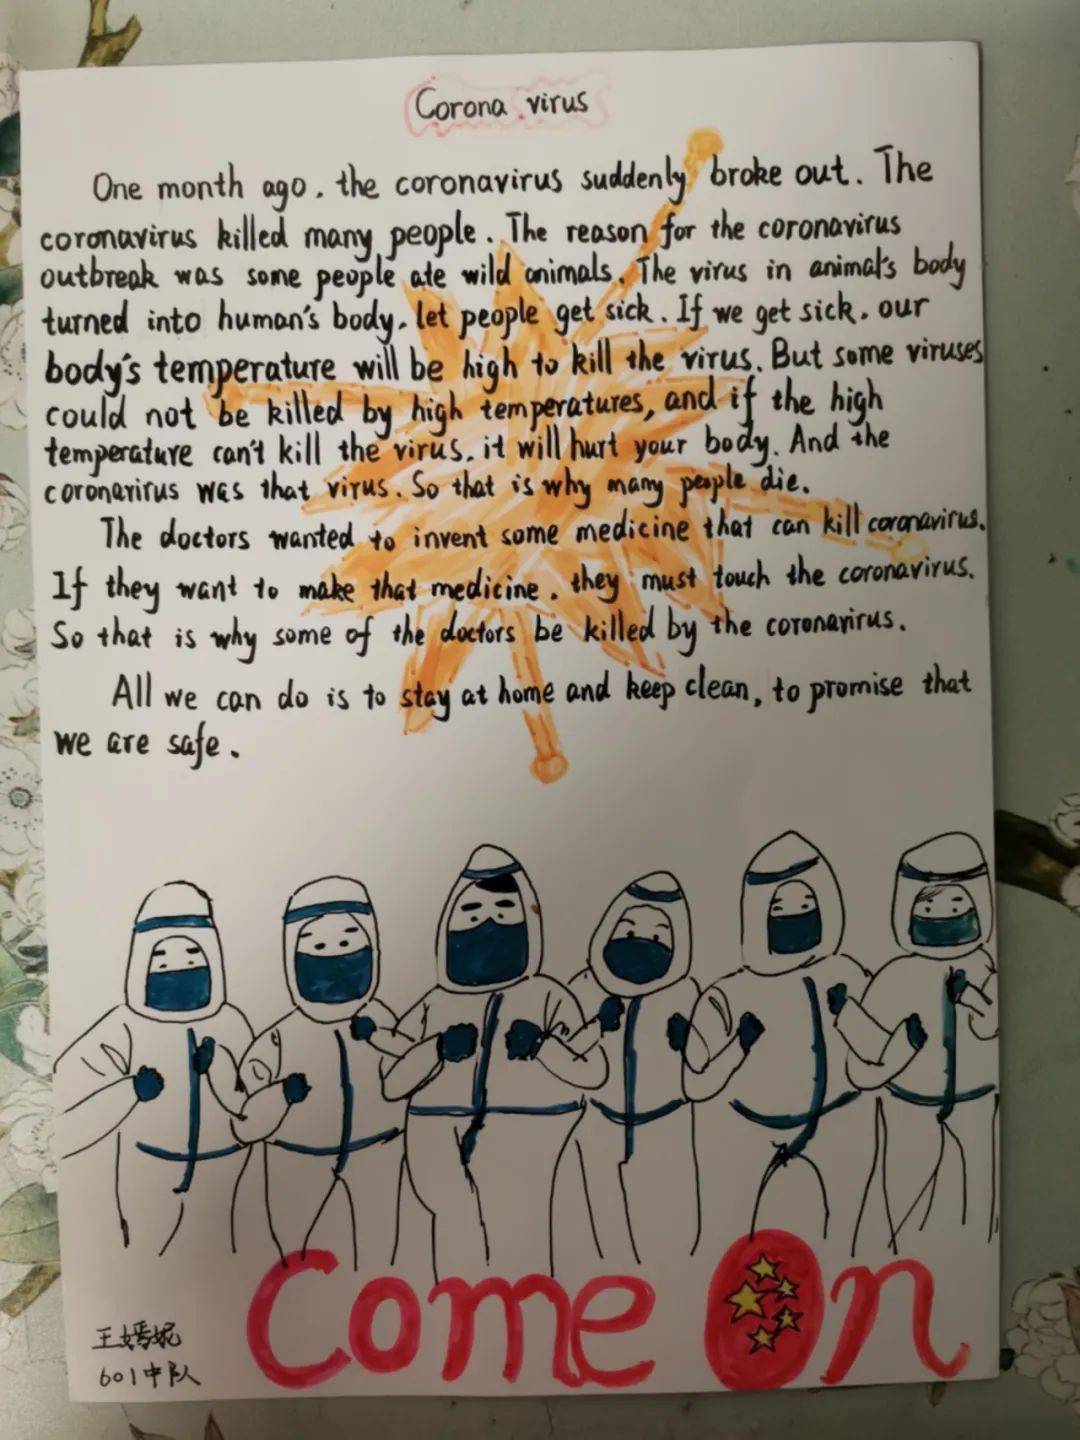 Corona virus
One month ago. the coronavirus suddenly broke out. The
coronavirus killed many people. The reason for the coronavirus
outbreak was some people ate wild animals. The virus in animal's body
turned into human's body. let people get sick. If we get sick. our
body's temperature will be high to kill the virus. But some viruses
could not be killed by high temperatures, and if the high
temperature can't kill the virus. it will hurt your body. And the
coronavirus was that virus. So that is why many people die.
The doctors wanted to invent some medicine that can kill coronavirus.
If they want to make that medicine. they must touch the coronavirus.
So that is why some of the doctors be killed by the coronavirus.
All we can do is to stay at home and keep clean, to promise that
we are safe.
Come On
王嫣妮
601中队